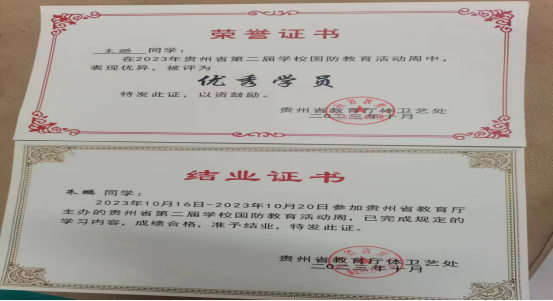 荣誉证书
朱鹏 同学:
在2023年贵州省第二届学校国防教育活动周中,
表现优异,被评为
优秀学员
特发此证,以资鼓励。
贵州省教育厅体卫艺处
二〇二三年十月
结业证书
朱鹏 同学:
2023年10月16日-2023年10月20日参加贵州省教育厅
主办的贵州省第二届学校国防教育活动周,已完成规定的
学习内容,成绩合格,准予结业,特发此证。
贵州省教育厅体卫艺处
二〇二三年十月